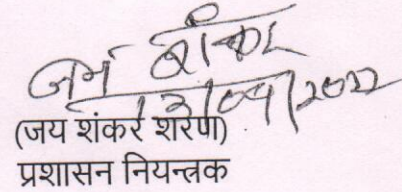 जय शंकर
13/09/2022
(जय शंकर शरण)
प्रशासन नियन्त्रक